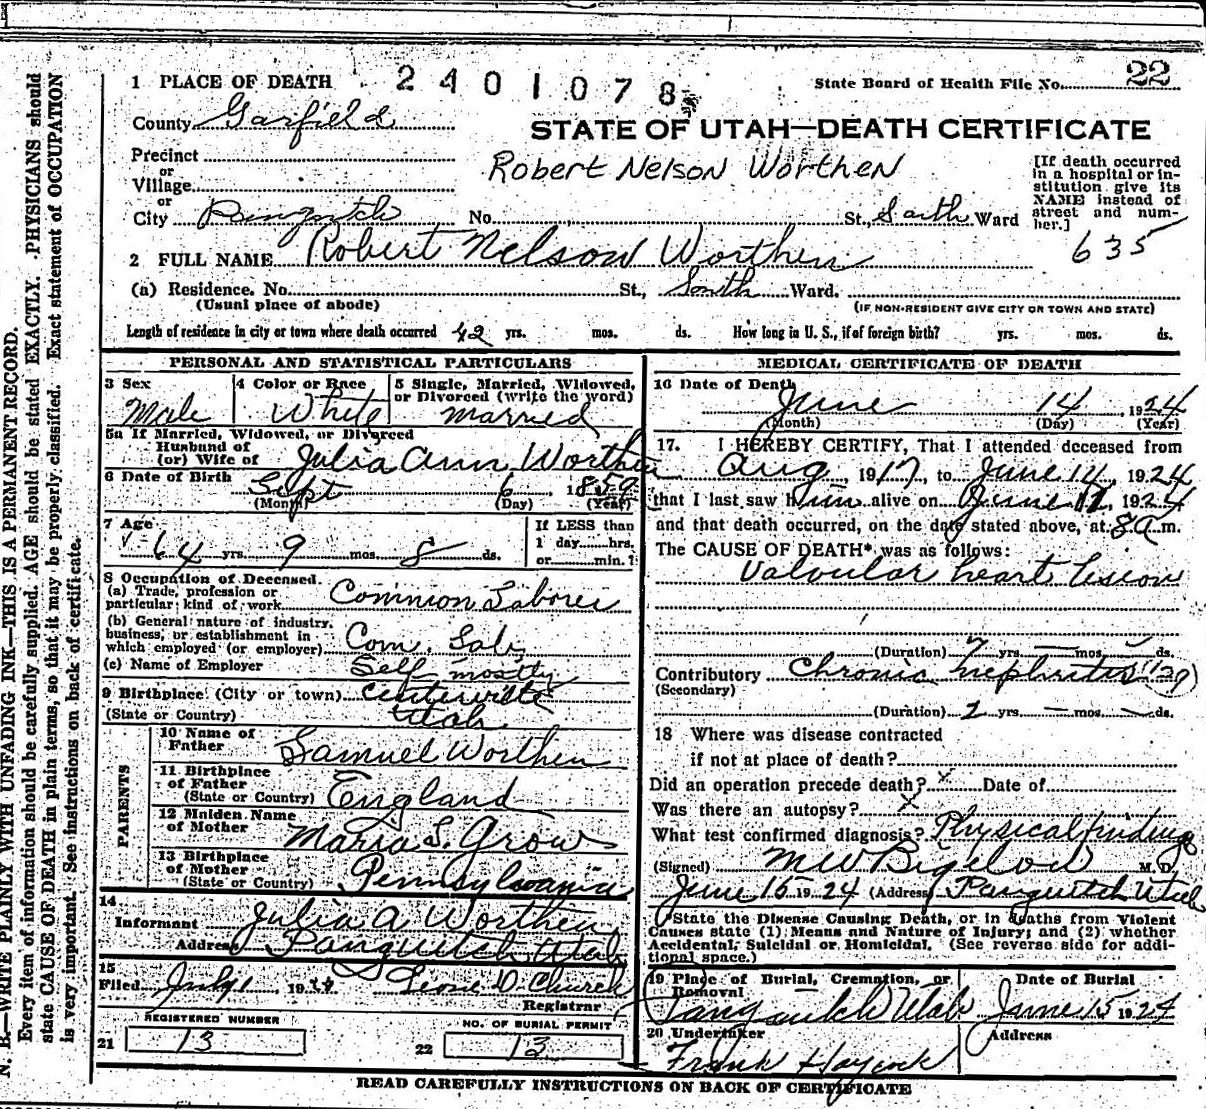 N. B.—WRITE PLAINLY WITH UNFADING INK—THIS IS A PERMANENT RECORD.
Every item of information should be carefully supplied. AGE should be stated EXACTLY. PHYSICIANS should
state CAUSE OF DEATH in plain terms, so that it may be properly classified. Exact statement of OCCUPATION
is very important. See instructions on back of certificate.
1 PLACE OF DEATH 2401078 State Board of Health File No. 22
County Garfield
STATE OF UTAH—DEATH CERTIFICATE
Precinct
or
Village
Robert Nelson Worthen
[If death occurred
in a hospital or in-
stitution give its
NAME instead of
street and num-
ber.]
or
City Panguitch No. St., South Ward
635
2 FULL NAME Robert Nelson Worthen
(a) Residence. No. St., South Ward.
(Usual place of abode) (IF NON-RESIDENT GIVE CITY OR TOWN AND STATE)
Length of residence in city or town where death occurred 42 yrs. mos. ds. How long in U. S., if of foreign birth? yrs. mos. ds.
PERSONAL AND STATISTICAL PARTICULARS
3 Sex 4 Color or Race 5 Single, Married, Widowed,
or Divorced (write the word)
Male White married
5a If Married, Widowed, or Divorced
Husband of
(or) Wife of Julia Ann Worthen
6 Date of Birth Sept 6, 1859
(Month) (Day) (Year)
7 Age If LESS than
1 day......hrs.
64 yrs. 9 mos. 8 ds. or......min.?
8 Occupation of Deceased.
(a) Trade, profession or
particular kind of work Common Laborer
(b) General nature of industry,
business, or establishment in
which employed (or employer) Com. Labr
(c) Name of Employer Self mostly
9 Birthplace (City or town) Centerville
(State or Country) Utah
PARENTS
10 Name of
Father Samuel Worthen
11 Birthplace
of Father
(State or Country) England
12 Maiden Name
of Mother Maria S. Grow
13 Birthplace
of Mother
(State or Country) Pennsylvania
14
Informant Julia A Worthen
Address Panguitch Utah
15
Filed July 1 1924 Leone D. Church
Registrar
REGISTERED NUMBER NO. OF BURIAL PERMIT
21 13 22 13
MEDICAL CERTIFICATE OF DEATH
16 Date of Death
June 14, 1924
(Month) (Day) (Year)
17. I HEREBY CERTIFY, That I attended deceased from
Aug 1917, to June 14, 1924
that I last saw him alive on June, 1924
and that death occurred, on the date stated above, at 8 a m.
The CAUSE OF DEATH* was as follows:
Valvular heart lesion
(Duration) 7 yrs. — mos. ds.
Contributory Chronic nephritis
(Secondary)
(Duration) 2 yrs. — mos. — ds.
18 Where was disease contracted
if not at place of death?
Did an operation precede death? x Date of
Was there an autopsy? x
What test confirmed diagnosis? Physical findings
(Signed) M W Bigelow M. D.
June 15 1924 (Address) Panguitch Utah
(*State the Disease Causing Death, or in deaths from Violent
Causes state (1) Means and Nature of Injury; and (2) whether
Accidental, Suicidal or Homicidal. (See reverse side for addi-
tional space.)
19 Place of Burial, Cremation, or
Removal Date of Burial
Panguitch Utah June 15 1924
20 Undertaker Address
Frank Haycock
READ CAREFULLY INSTRUCTIONS ON BACK OF CERTIFICATE